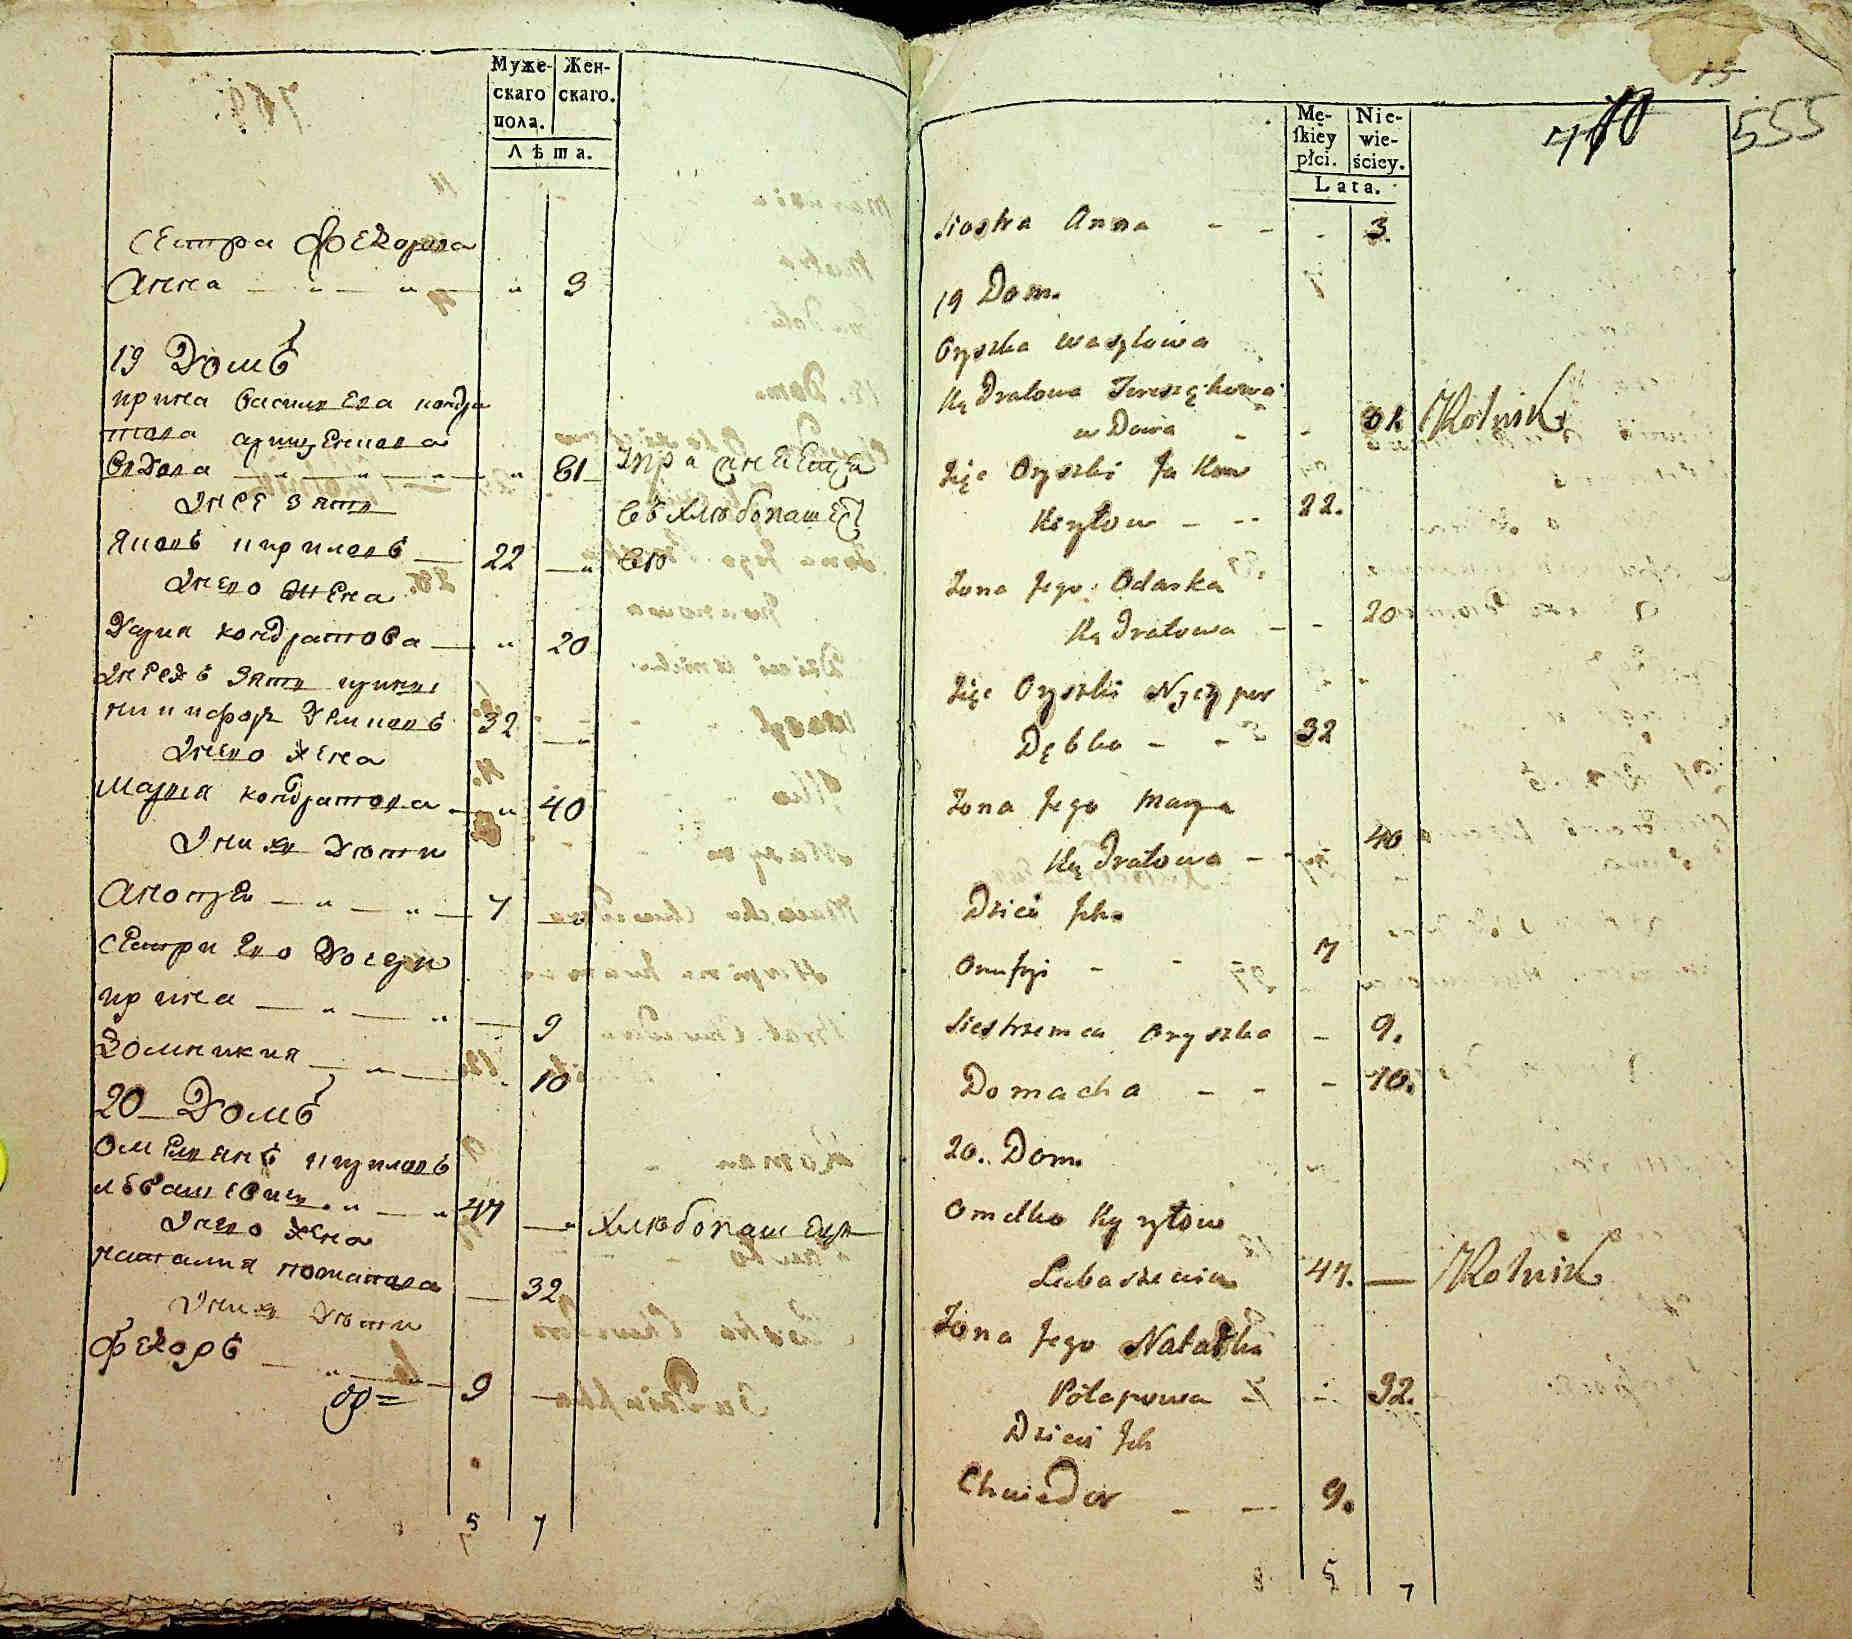 Муже-
скаго
пола.
Жен-
скаго.
Лѣта.
сестра Федорова
Анна 3
19 Домъ
ирина василева кондра
това
вдова 61
Унее зять
Яковъ кириловъ 22
Унего жена
Дария кондратова 20
зять ирины
никифоръ 32
Унего жена
Мария кондратова 40
Уних дети
Анопри 7
сестри его дочери
ирина 9
Домникия 10
20 Домъ
Омелянъ кириловъ
47 хлебопашец
Унего жена
наталия потапова 32
Уних дети
Федоръ 9
5 7
15
460
555
Mę-
skiey
płci.
Nie-
wie-
ściey.
Lata.
Siostra Anna 3.
19 Dom.
Oryszka Wasylowa
Kędratowa
wdowa 61 Rolnik
Zięc Oryszki Jakow
Kryłow 22.
Zona Jego Odarka
Kędratowa 20
Zięc Oryszki Nyczypor
Dębko 32
Zona Jego Marya
Kędratowa 40
Dzieci Jch.
Onufryi 7
Siestrzenica Oryszka 9.
Domacha 10.
20. Dom.
Omelko Kyryłow
Lubaszewin 47. Rolnik
Zona Jego Natalka
Potapowa 32.
Dzieci Jch
Chwedor 9.
5
7